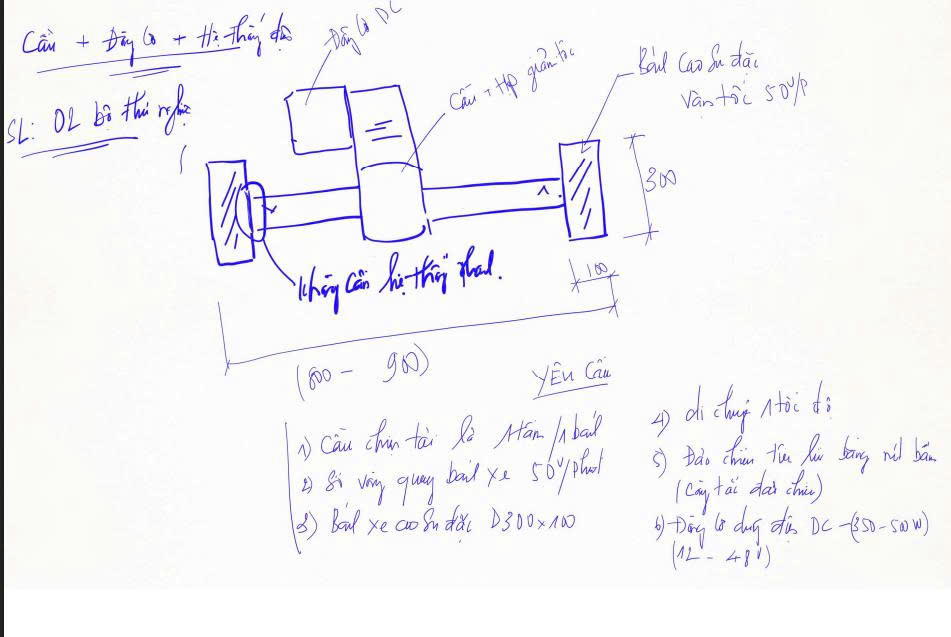 Cầu + Động cơ + Hệ thống điện
SL: 02 bộ thử nghiệm
Động cơ DC
Cầu + Hộp giảm tốc
Bánh cao su đặc
Vận tốc 50v/p
300
100
Không cần hệ thống phanh.
(800 - 900)
YÊU Cầu
1) Cầu chịu tải là 1tấn/1bánh
2) Số vòng quay bánh xe 50v/phút
3) Bánh xe cao su đặc D300x100
4) di chuyển 1 tốc độ
5) Đảo chiều tiến lùi bằng nút bấm
(Công tắc đảo chiều)
6) Động cơ dùng điện DC -(350-500W)
(12 - 48V)